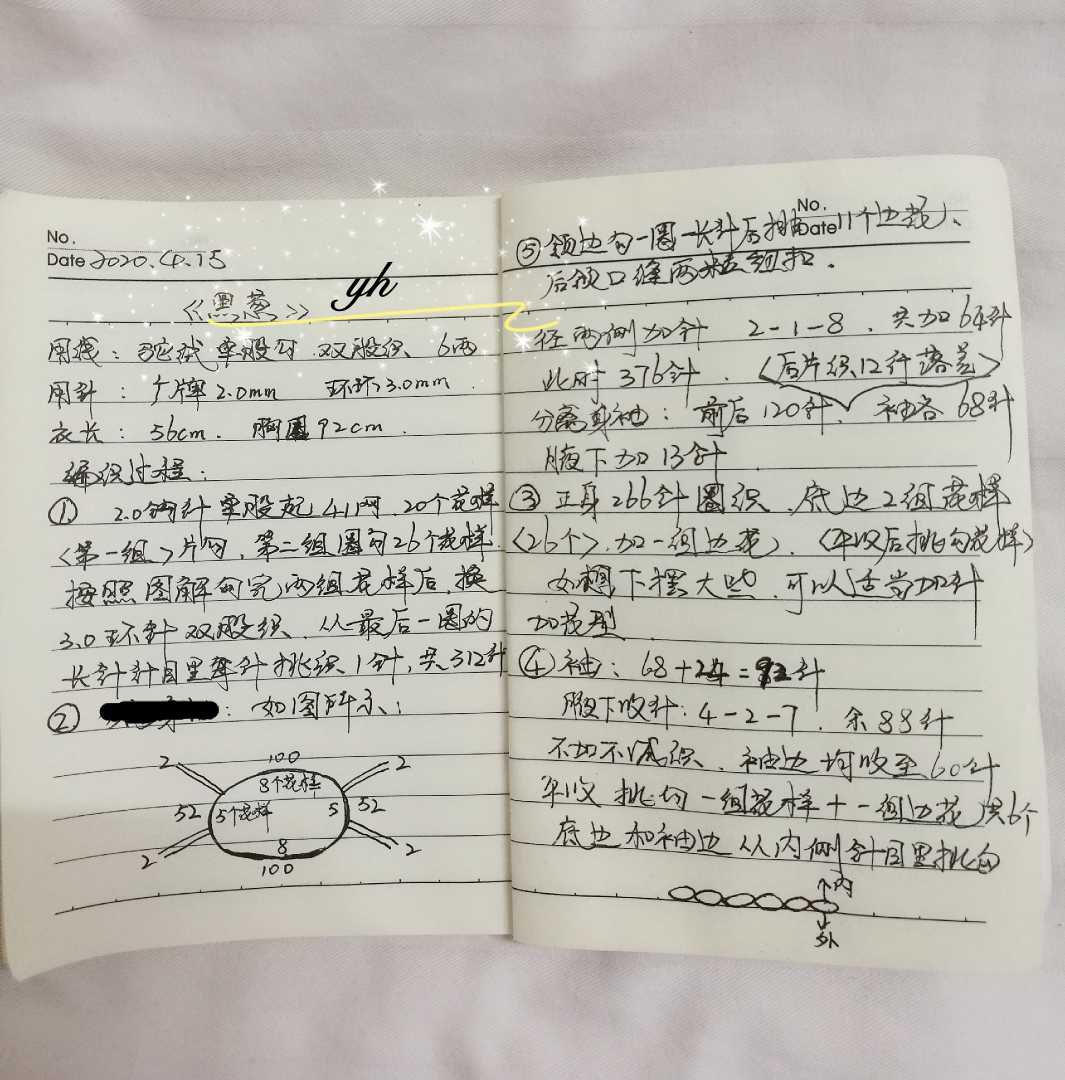 No.
Date 2020.4.15
yh
《黑慕》
用线：驼绒单股勾.双股织、6两
用针：广牌2.0mm 环环3.0mm.
衣长：56cm. 胸围92cm.
编织过程：
① 2.0钩针单股起41网，20个花样
<第一组>片勾，第二组圈勾26个花样.
按照图解勾完两组花样后，换
3.0环针双股织、从最后一圈的
长针针目里每针挑织1针，共312针
② ：如图所示：
2 100 2
8个花样
52 5个花样 5 52
8
2 100 2
No.
Date
⑤领边勾一圈一长针后 11个边花、
后领口缝两粒纽扣.
径两侧加针 2-1-8.共加64针
此时376针.<后片织12行落差>
分离身袖：前后120针、袖各68针
腋下加13针.
③正身266针圈织、底边2组花样
<26个>.加一组边花、<平收后挑勾花样>
如想下摆大些.可以适当加针
加花型.
④袖：68+24=92针
腋下收针：4-2-7.余88针
不加不减织、袖边均收至60针
平收挑勾一组花样+一组边花共6个
底边和袖边从内侧针目里挑勾
内
外